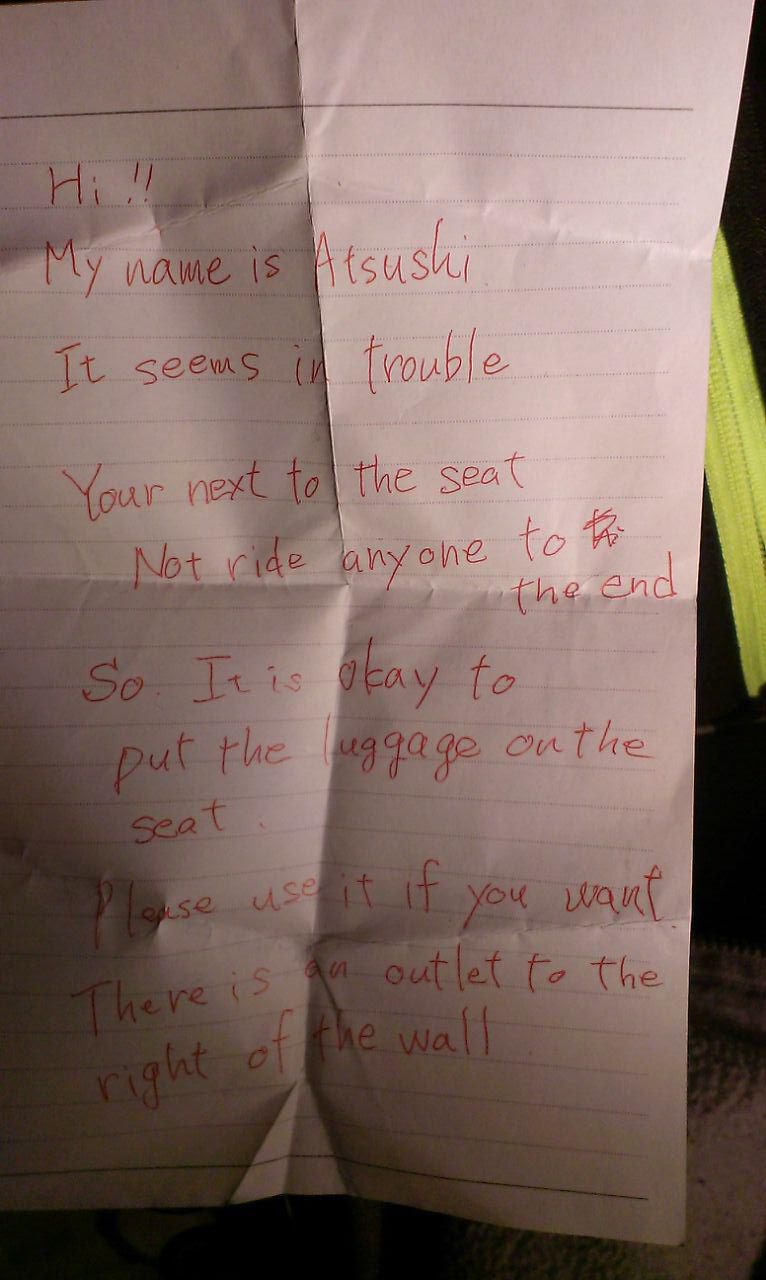 Hi !!
My name is Atsushi
It seems in trouble
Your next to the seat
Not ride anyone to
the end
So. It is okay to
put the luggage on the
seat.
Please use it if you want.
There is an outlet to the
right of the wall